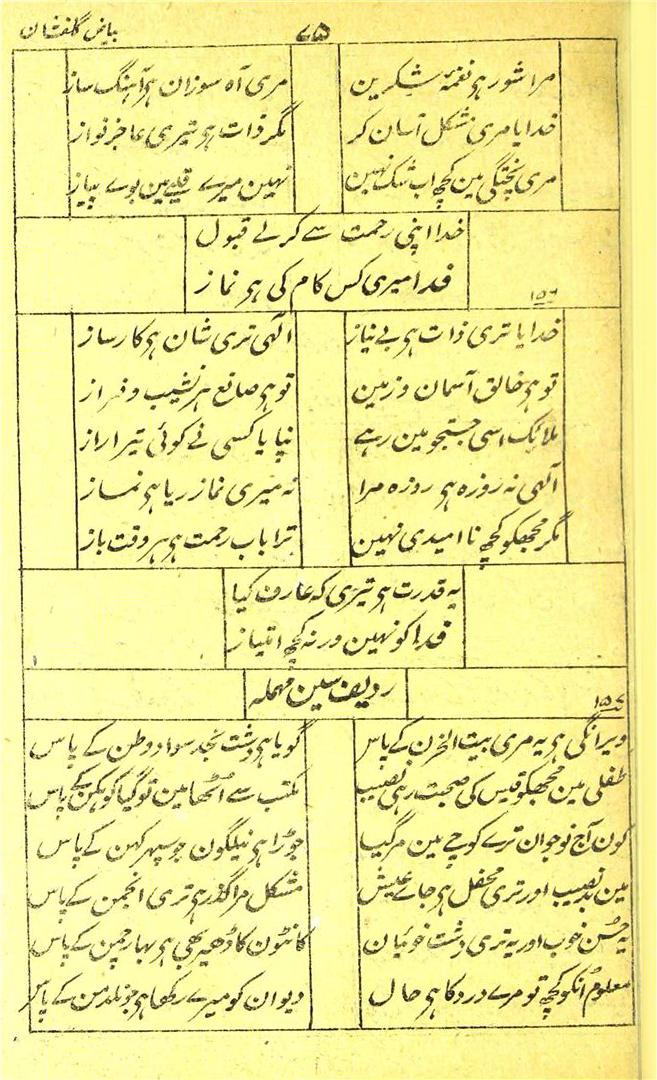 ۷۵
بیاض گلفشان
مرا شور ہو نغمۂ شکرین
مری آہ سوزان ہو آہنگ ساز
خدایا مری مشکل آسان کر
مگر ذات ہو تیری عاجز نواز
مری پختگی مین کچھ اب شک نہین
نہین میرے قلیے مین بوے پیاز
خدا اپنی رحمت سے کر لے قبول
فدا میری کس کام کی ہو نماز
۱۵۶
خدایا تری ذات ہو بے نیاز
الٰہی تری شان ہو کارساز
تو ہو خالق آسمان و زمین
تو ہو صانع ہر نشیب و فراز
ملائک اسی جستجو مین رہے
نپایا کسی نے کوئی تیرا راز
الٰہی نہ روزہ ہو روزہ مرا
نہ میری نماز ریا ہو نماز
مگر مجھکو کچھ نا امیدی نہین
ترا باب رحمت ہو ہر وقت باز
یہ قدرت ہو تیری کہ عارف کیا
فدا کو نہین ورنہ کچھ امتیاز
ردیف سین مہملہ
۱۵۷
ویرانگی ہو یہ مری بیت الحزن کے پاس
گویا ہو دشت نجد سواد وطن کے پاس
طفلی مین مجھکو قیس کی صحبت رہی نصیب
مکتب سے اُٹھا مین تو گیا کوہکن کے پاس
کون آج نوجوان ترے کوچے مین مر گیا
جوڑا ہو نیلگون جو سپہر کہن کے پاس
مین بد نصیب اور تری محفل ہو جاے عیش
مشکل مرا گذر ہو تری انجمن کے پاس
یہ حُسن خوب اور یہ تری زشت خوئیان
کانٹون کا ڈھیر بھی ہو بہار چمن کے پاس
معلوم اُنکو کچھ تو مرے درد کا ہو حال
دیوان کو میرے رکھا ہو جو نلدمن کے پاس